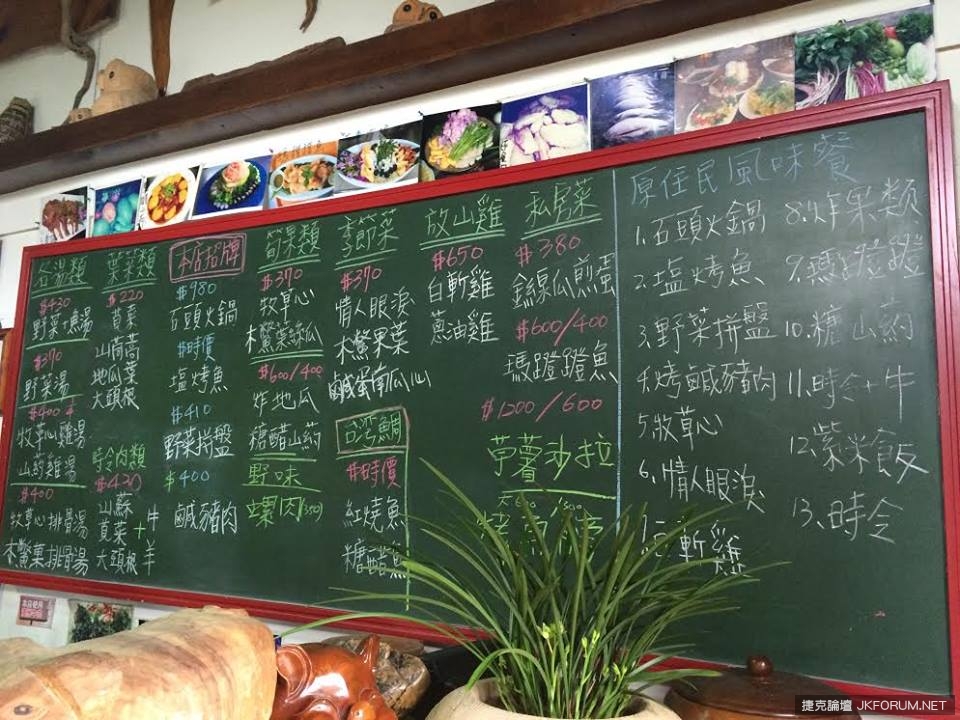 各湯類
$420
野菜+魚湯
$370
野菜湯
$400
牧草心雞湯
山葯雞湯
$400
牧草心排骨湯
木鱉葉排骨湯
葉菜類
$220
莧菜
山茼萵
地瓜葉
大頭根
時令肉類
$420
山蘇
莧菜+牛
大頭根 羊
本店招牌
$980
石頭火鍋
$時價
塩烤魚
$410
野菜拼盤
$400
鹹豬肉
筍果類
$370
牧草心
木鱉葉絲瓜
$600/400
炸地瓜
糖醋山葯
野味
螺肉
季節菜
$370
情人眼淚
木鱉果葉
鹹蛋南瓜
台灣鯛
$時價
紅燒魚
糖醋魚
放山雞
$650
白斬雞
蔥油雞
私房菜
$380
金線瓜煎蛋
$600/400
瑪蹬蹬魚
$1200/600
沙拉
原住民風味餐
1.石頭火鍋
2.塩烤魚
3.野菜拼盤
4.烤鹹豬肉
5.牧草心
6.情人眼淚
斬雞
8.炸果類
9.瑪蹬蹬
10.糖山葯
11.時令+牛
12.紫米飯
13.時令
捷克論壇 JKFORUM.NET